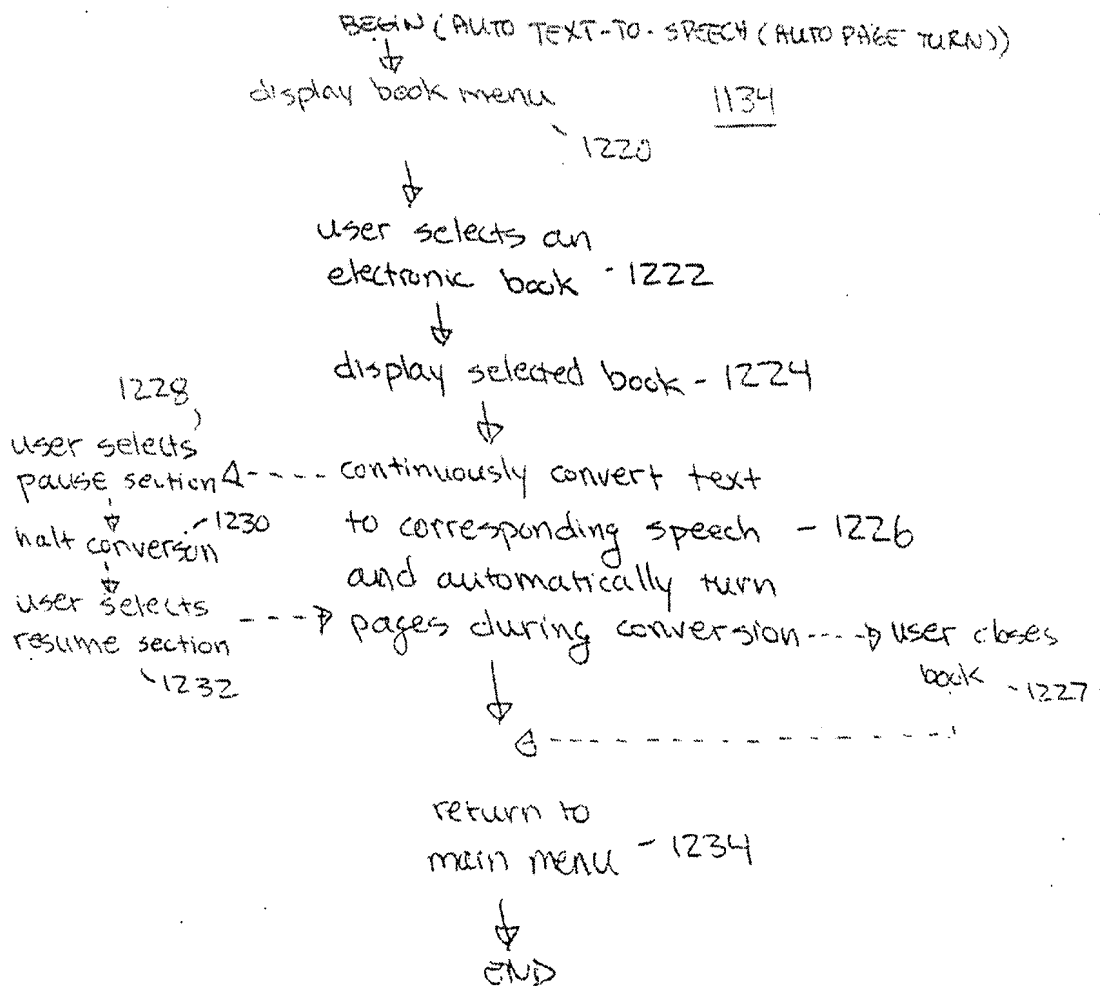 BEGIN (AUTO TEXT-TO-SPEECH (AUTO PAGE TURN))
display book menu
1134
1220
user selects an
electronic book - 1222
display selected book - 1224
1228
user selects
pause section
1230
halt conversion
user selects
resume section
1232
continuously convert text
to corresponding speech - 1226
and automatically turn
pages during conversion
user closes
book - 1227
return to
main menu - 1234
END